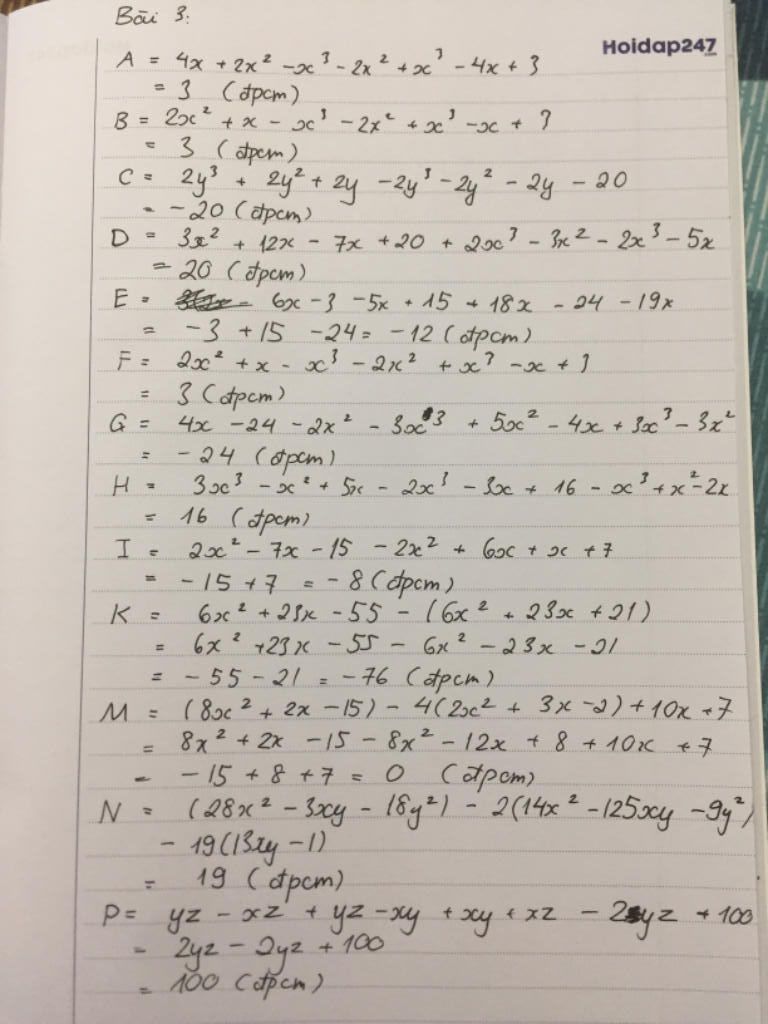 Bài 3:
Hoidap247
A = 4x + 2x² - x³ - 2x² + x³ - 4x + 3
= 3 (đpcm)
B = 2x² + x - x³ - 2x² + x³ - x + 3
= 3 (đpcm)
C = 2y³ + 2y² + 2y - 2y³ - 2y² - 2y - 20
= -20 (đpcm)
D = 3x² + 12x - 7x + 20 + 2x³ - 3x² - 2x³ - 5x
= 20 (đpcm)
E = 6x - 3 - 5x + 15 + 18x - 24 - 19x
= -3 + 15 - 24 = -12 (đpcm)
F = 2x² + x - x³ - 2x² + x³ - x + 3
= 3 (đpcm)
G = 4x - 24 - 2x² - 3x³ + 5x² - 4x + 3x³ - 3x²
= -24 (đpcm)
H = 3x³ - x² + 5x - 2x³ - 3x + 16 - x³ + x² - 2x
= 16 (đpcm)
I = 2x² - 7x - 15 - 2x² + 6x + x + 7
= -15 + 7 = -8 (đpcm)
K = 6x² + 23x - 55 - (6x² + 23x + 21)
= 6x² + 23x - 55 - 6x² - 23x - 21
= -55 - 21 = -76 (đpcm)
M = (8x² + 2x - 15) - 4(2x² + 3x - 2) + 10x + 7
= 8x² + 2x - 15 - 8x² - 12x + 8 + 10x + 7
= -15 + 8 + 7 = 0 (đpcm)
N = (28x² - 3xy - 18y²) - 2(14x² - 125xy - 9y²)
- 19(13xy - 1)
= 19 (đpcm)
P = yz - xz + yz - xy + xy + xz - 2yz + 100
= 2yz - 2yz + 100
= 100 (đpcm)